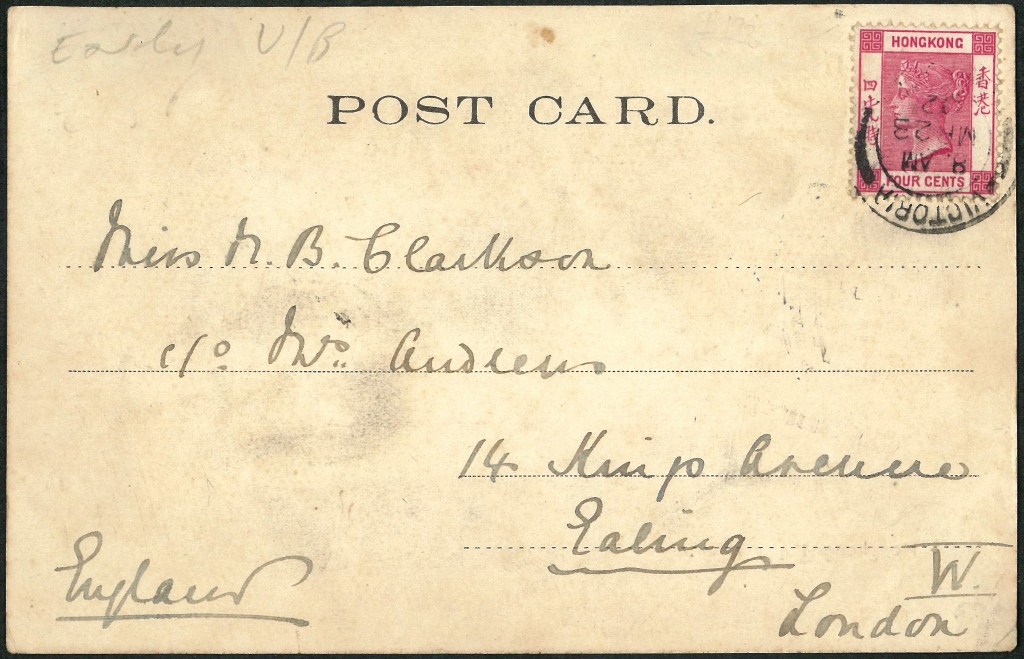 Early U/B
HONGKONG
香港
四先時
FOUR CENTS
VICTORIA
8 AM
MR 23
02
POST CARD.
Miss M. B. Clarkson
c/o Mrs. Andrews
14 Kings Avenue
Ealing
W.
London
England